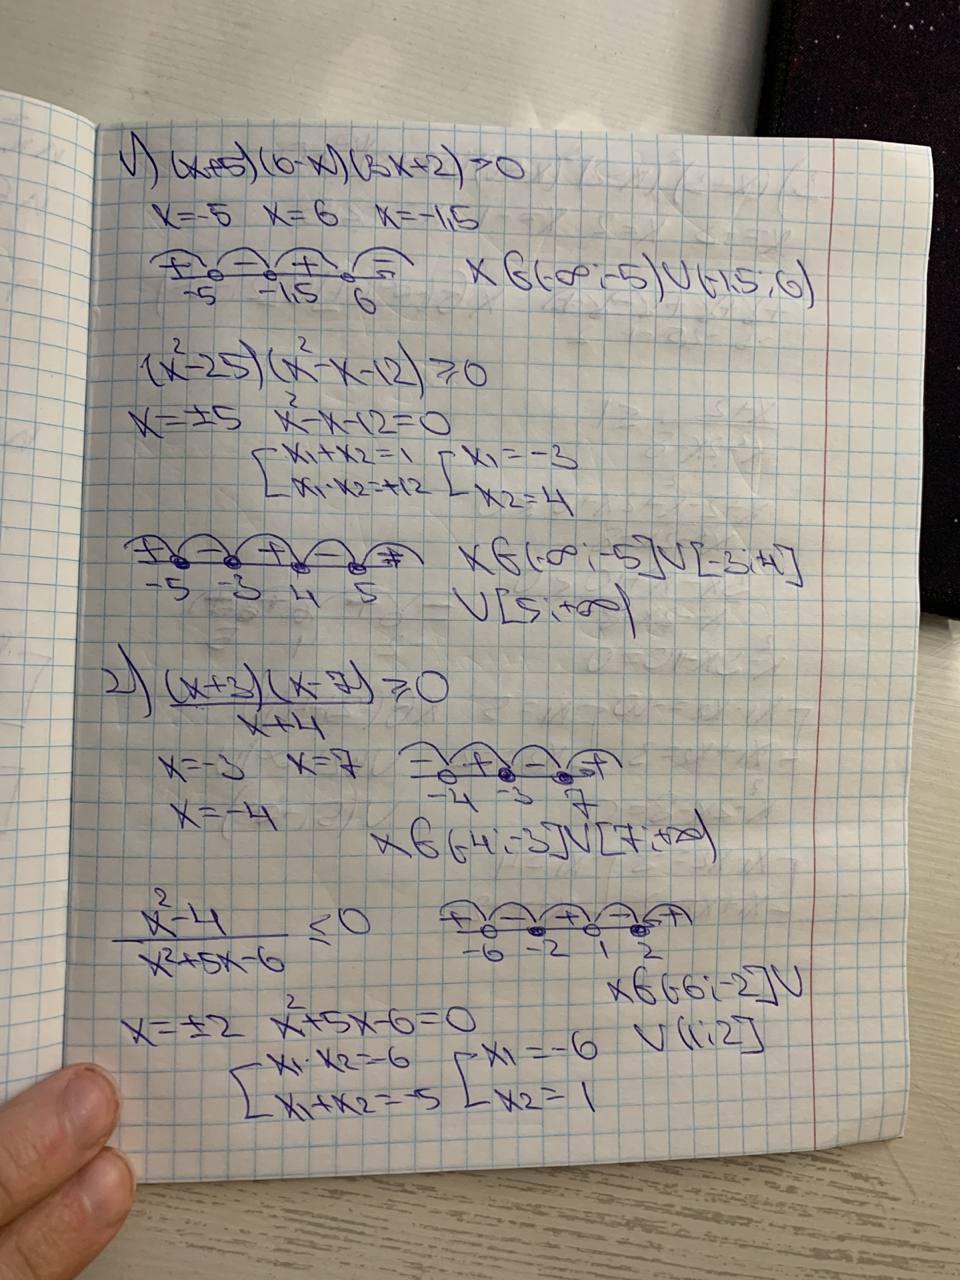 1) (x+5)(6-x)(3x+2)>0
x=-5 x=6 x=-1,5
+ - + -
-5 -1,5 6
x∈(-∞;-5)∪(-1,5;6)
(x²-25)(x²-x-12)≥0
x=±5 x²-x-12=0
[x₁+x₂=1 [x₁=-3
x₁·x₂=+12 x₂=4
+ - + - +
-5 -3 4 5
x∈(-∞;-5]∪[-3;4]
∪[5;+∞)
2) (x+3)(x-7)/x+4 ≥0
x=-3 x=7
x=-4
- + - +
-4 -3 7
x∈(-4;-3]∪[7;+∞)
x²-4/x²+5x-6 ≤0
+ - + - +
-6 -2 1 2
x∈(-6;-2]∪
∪(1;2]
x=±2 x²+5x-6=0
[x₁·x₂=-6 [x₁=-6
x₁+x₂=-5 x₂=1